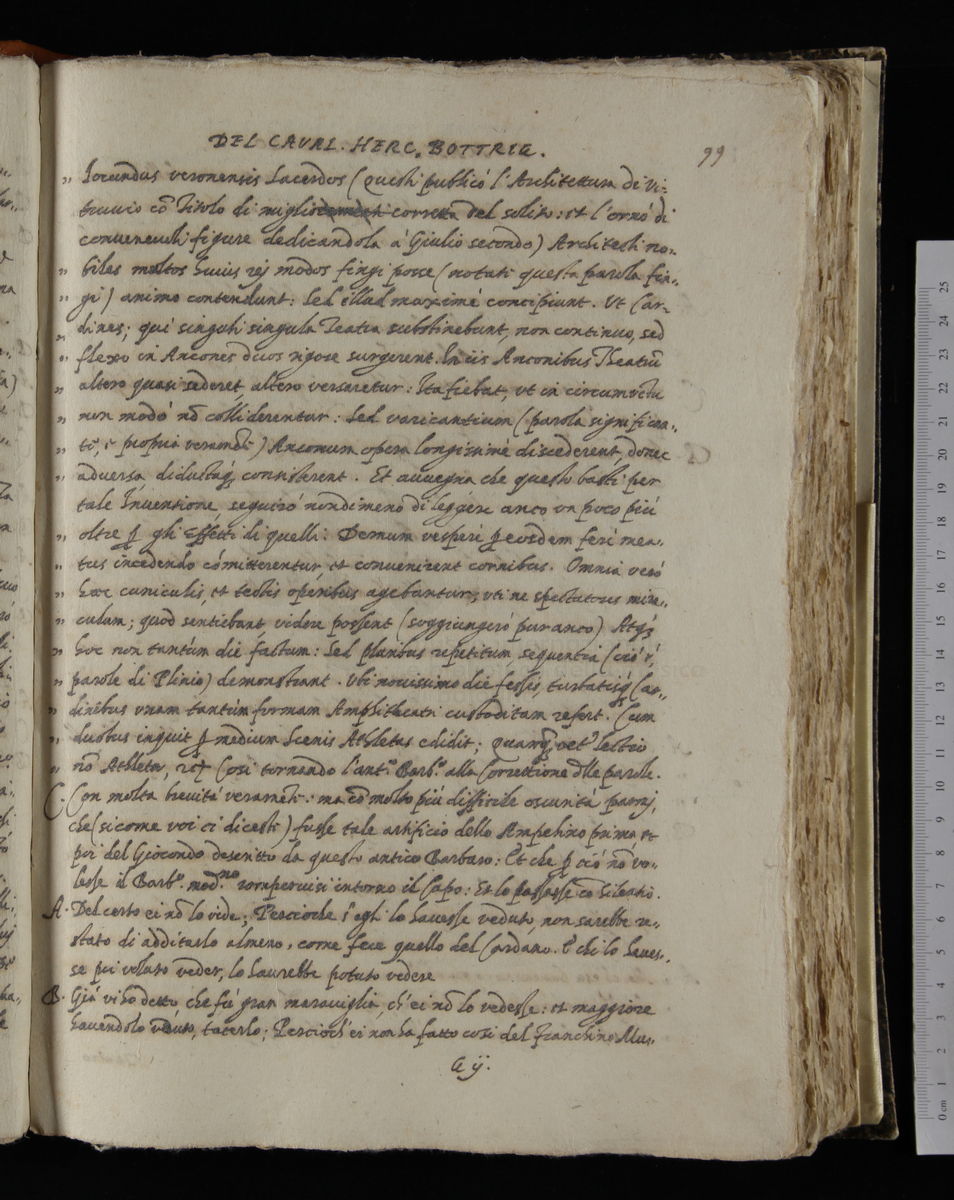 DEL CAVAL. HERC. BOTTRIG.
99
„ Iocundus veronensis Sacerdos (Questi publicó l'Architettura di Vi-
truuio cō Titolo di miglio corretta del solito: et l'ornó di
conueneuoli figure dedicandola á Giulio secondo) Architecti no-
„ biles multos huius rej modos fingi posse (notati questa parola fin-
„ gi) animo contendunt: Sed illud maximé concipiunt. Ut Car-
„ dines; qui singuli singula Teatra substinebunt, non continuo, sed
„ flexo in Ancones duos rigore surgerent. In iis Anconibus Theatrū
„ altero quasi sederet, altero versaretur: Ita fiebat, ut in circumuectu
„ non modó nō colliderentur: Sed varicantium (parola significan-
„ te, é propria veramēte) Anconum opera longissimé discederent, donec
„ aduersa diductaq; consisterent. Et auuegna che questo basti per
tale Inuentione, seguiró nondimeno di leggere anco un poco piú
„ oltre ꝑ gli Effetti di quelli: Demum vesperi ꝑ eosdem feré mea-
„ tus incedendo cómitterentur, et conuenirent cornibus. Omnia veró
„ haec cuniculis, et tectis operibus agebantur, uti ne spectatores mira-
„ culum; quod sentiebant, videre possent (soggiungeró pur anco) Atq;
„ hoc non tantúm die factum: Sed pluribus repetitum, sequentia (ció é,
„ parole di Plinio) demonstrant. Ubi nouissimo die fessis, turbatisq; Car-
„ dinibus unam tantúm formam Amphiteatri custoditam refert. Cum
„ duobus inquit ꝑ medium Scenis Athletas edidit; quamq; vet' lectio
„ nō Athleta, Cosi tornando l'ant.º Barb.º alla Correttione dlle parole.
C. Con molta breuitá veramēte: ma cō molto piú difficile oscuritá parmj,
che (si come voi ci dicesti) fusse tale artificio dello Ampelino prima, et
poi del Giocondo descritto da questo antico Barbaro: Et che ꝑ ció nō vo-
lesse il Barb.º mod.no rompercisi intorno il Capo: Et lo passasse cō silentio.
A. Del certo ei nō lo vide; Percioche s'egli lo hauesse veduto, non sarebbe re-
stato di additarlo almeno, come fece quello del Cardano. E chi lo haues-
se poi voluto veder, lo haurebbe potuto vedere
B. Giá vi ho detto che fú gran marauiglia, ch'ei nō lo vedesse: et maggiore
hauendolo veduto, tacerlo; Percioch'ei non ha fatto cosi del Franchino Mus-
G ij.